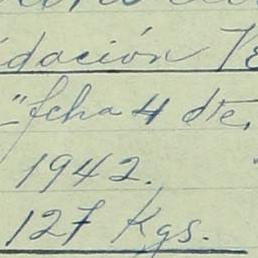 idación
"fcha 4 dte.
1942.
127 Kgs.